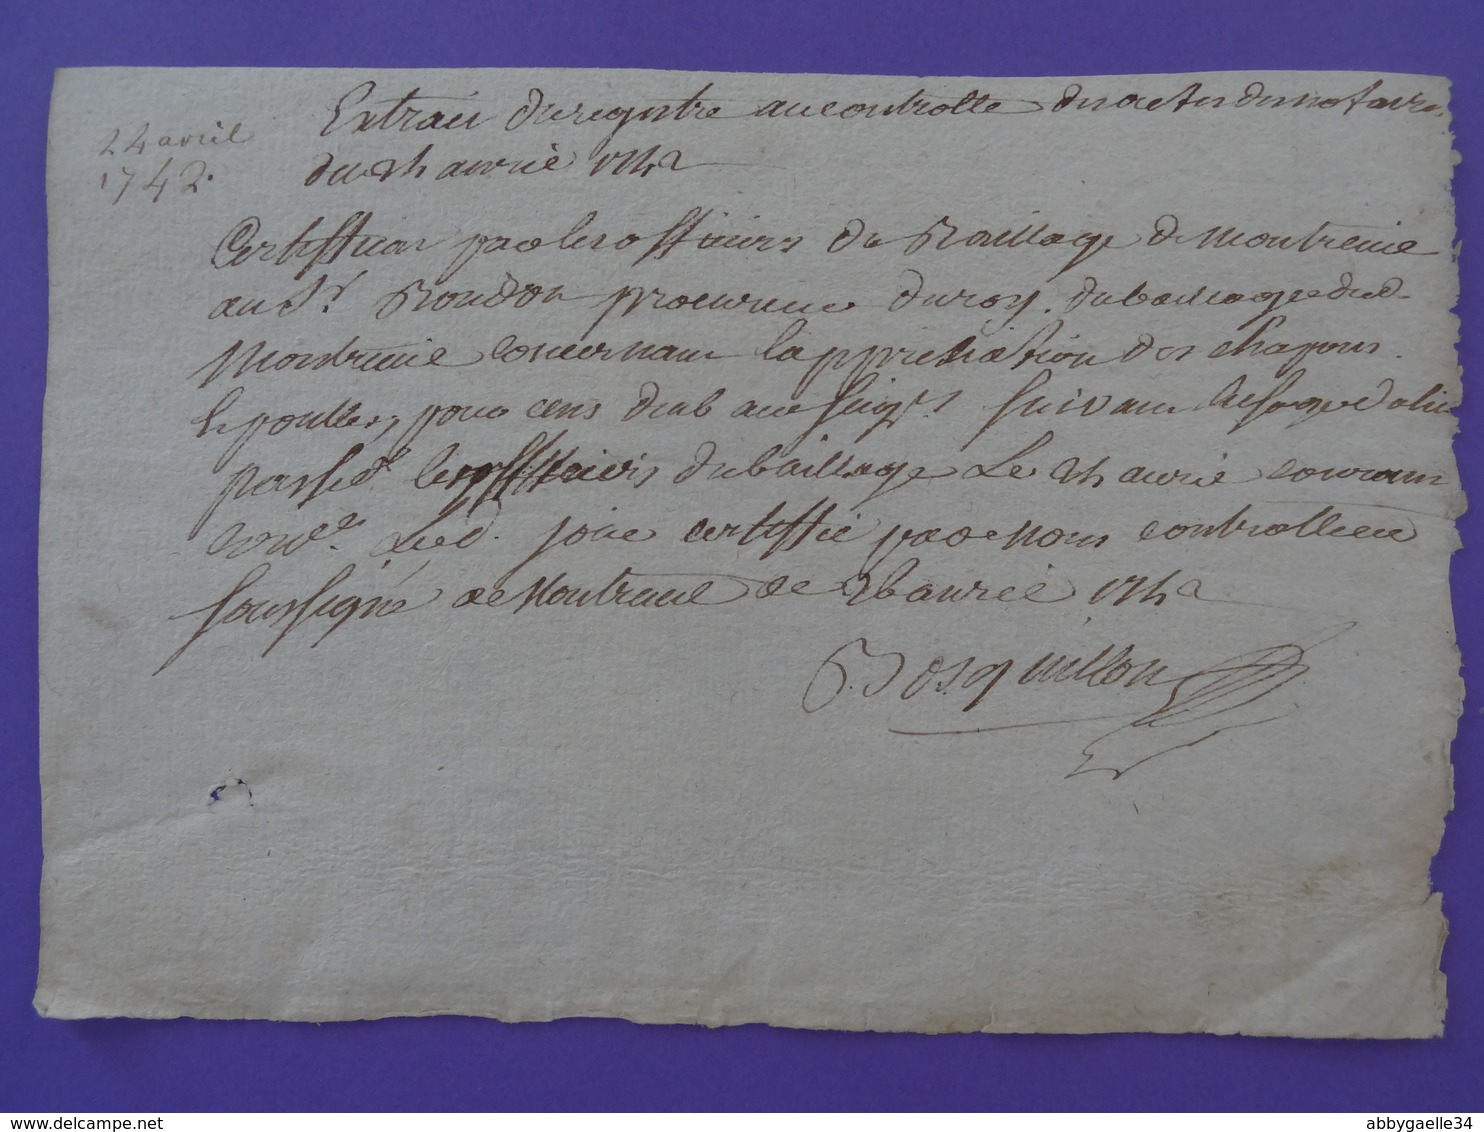 24 avril
1742.
Extrait du registre au controlle des actes des notaires
du 24 avril 1742
Certifficat par les officiers du Baillage de Montreuil
au Sr. Rondon procureur du roy du baillage dud.
Montreuil concernant lappretiation des chapons
& poulles, pour cens aux seigrs. suivant
passé les officiers du baillage Le 24 avril courant
Led. jour certiffié par Nous controlleur
soussigné a Montreuil ce 26 avril 1742
Bosquillon
delcampe.net
abbygaelle34